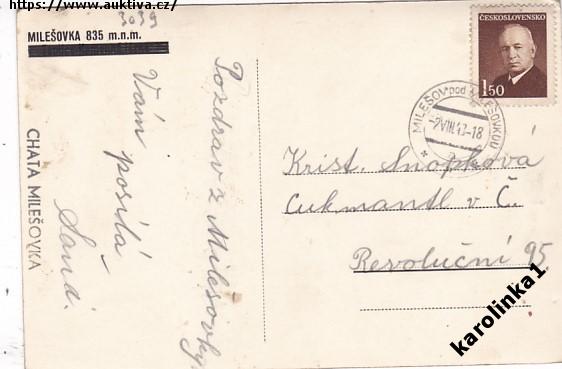 https://www.auktiva.cz/
3039
MILEŠOVKA 835 m.n.m.
CHATA MILEŠOVKA
Pozdrav z Milešovky,
Vám posílá
ČESKOSLOVENSKO
1.50
MILEŠOV pod MILEŠOVKOU
-2.VIII.47-18
Krist. Snopková
Cukmantl v Č.
Revoluční 95
karolinka1